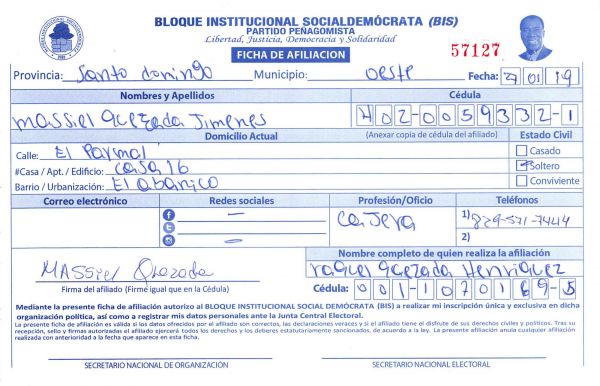 BLOQUE INSTITUCIONAL SOCIALDEMÓCRATA (BIS)
PARTIDO PEÑAGOMISTA
Libertad, Justicia, Democracia y Solidaridad
FICHA DE AFILIACION
57127
Provincia: Santo domingo Municipio: oeste Fecha: 27 01 19
Nombres y Apellidos Cédula
Massiel Quezada Jimenes 402-0059332-1
Domicilio Actual (Anexar copia de cédula del afiliado) Estado Civil
Calle: El Paymal Casado
#Casa / Apt. / Edificio: casa 16 Soltero
Barrio / Urbanización: El abanico Conviviente
Correo electrónico Redes sociales Profesión/Oficio Teléfonos
Cajera 1) 829-571-7444
2)
Nombre completo de quien realiza la afiliación
MASSiel Quezada raquel quezada Henriquez
Firma del afiliado (Firme igual que en la Cédula) Cédula: 001-1070169-5
Mediante la presente ficha de afiliación autorizo al BLOQUE INSTITUCIONAL SOCIAL DEMÓCRATA (BIS) a realizar mi inscripción única y exclusiva en dicha
organización política, así como a registrar mis datos personales ante la Junta Central Electoral.
La presente ficha de afiliación es válida si los datos ofrecidos por el afiliado son correctos, las declaraciones veraces y si el afiliado tiene el disfrute de sus derechos civiles y políticos. Tras su
recepción, sello y firmas autorizadas el afiliado ejercerá todos los derechos y los deberes estatutariamente sancionados, de acuerdo a la ley. La presente afiliación anula cualquier afiliación
realizada con anterioridad a la fecha que aparece en esta ficha.
SECRETARIO NACIONAL DE ORGANIZACIÓN SECRETARIO NACIONAL ELECTORAL